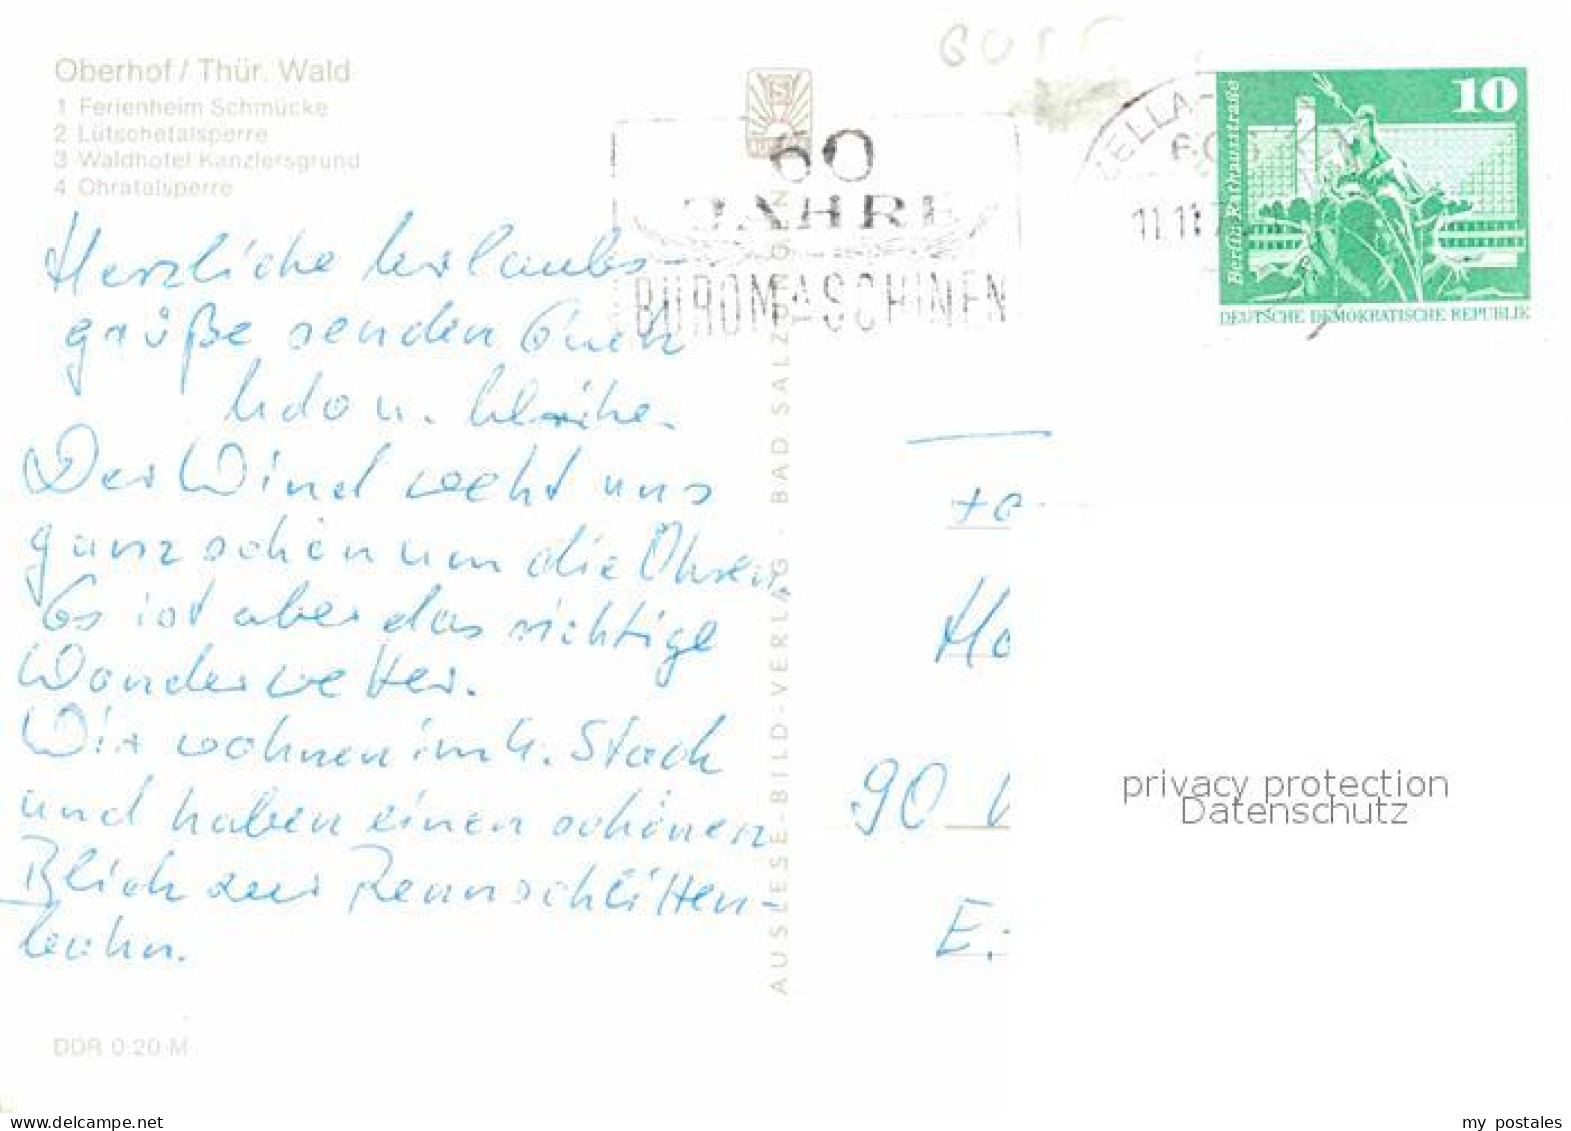 Oberhof / Thür. Wald
1 Ferienheim Schmücke
2 Lütschetalsperre
3 Waldhotel Kanzlersgrund
4 Ohratalsperre
60
JAHRE
BÜROMASCHINEN
ZELLA-
11.11.7
10
Berlin, Rathausstraße
DEUTSCHE DEMOKRATISCHE REPUBLIK
Herzliche Urlaubs-
grüße senden Euch
Udo u.
Der Wind weht uns
ganz schön um die Ohren.
Es ist aber das richtige
Wanderwetter.
Wir wohnen im 4. Stock
und haben einen schönen
Blick zur Rennschlitten-
bahn.
AUSLESE-BILD-VERLAG · BAD SALZUNGEN
Ho
90
E.-
privacy protection
Datenschutz
DDR 0.20 M
my postales